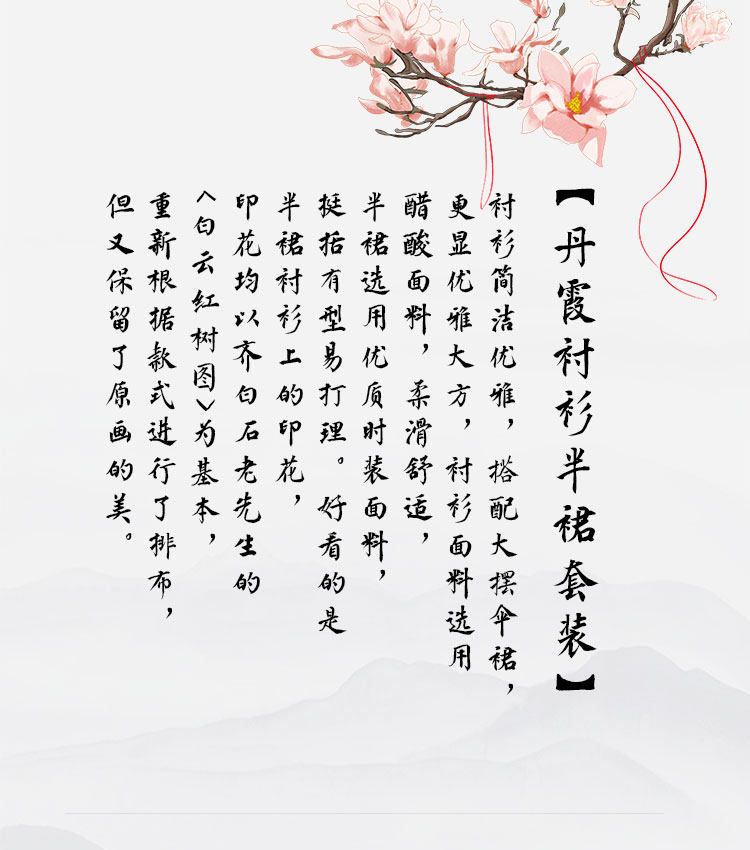 【丹霞衬衫半裙套装】
衬衫简洁优雅，搭配大摆伞裙，
更显优雅大方，衬衫面料选用
醋酸面料，柔滑舒适，
半裙选用优质时装面料，
挺括有型易打理。好看的是
半裙衬衫上的印花，
印花均以齐白石老先生的
<白云红树图>为基本，
重新根据款式进行了排布，
但又保留了原画的美。